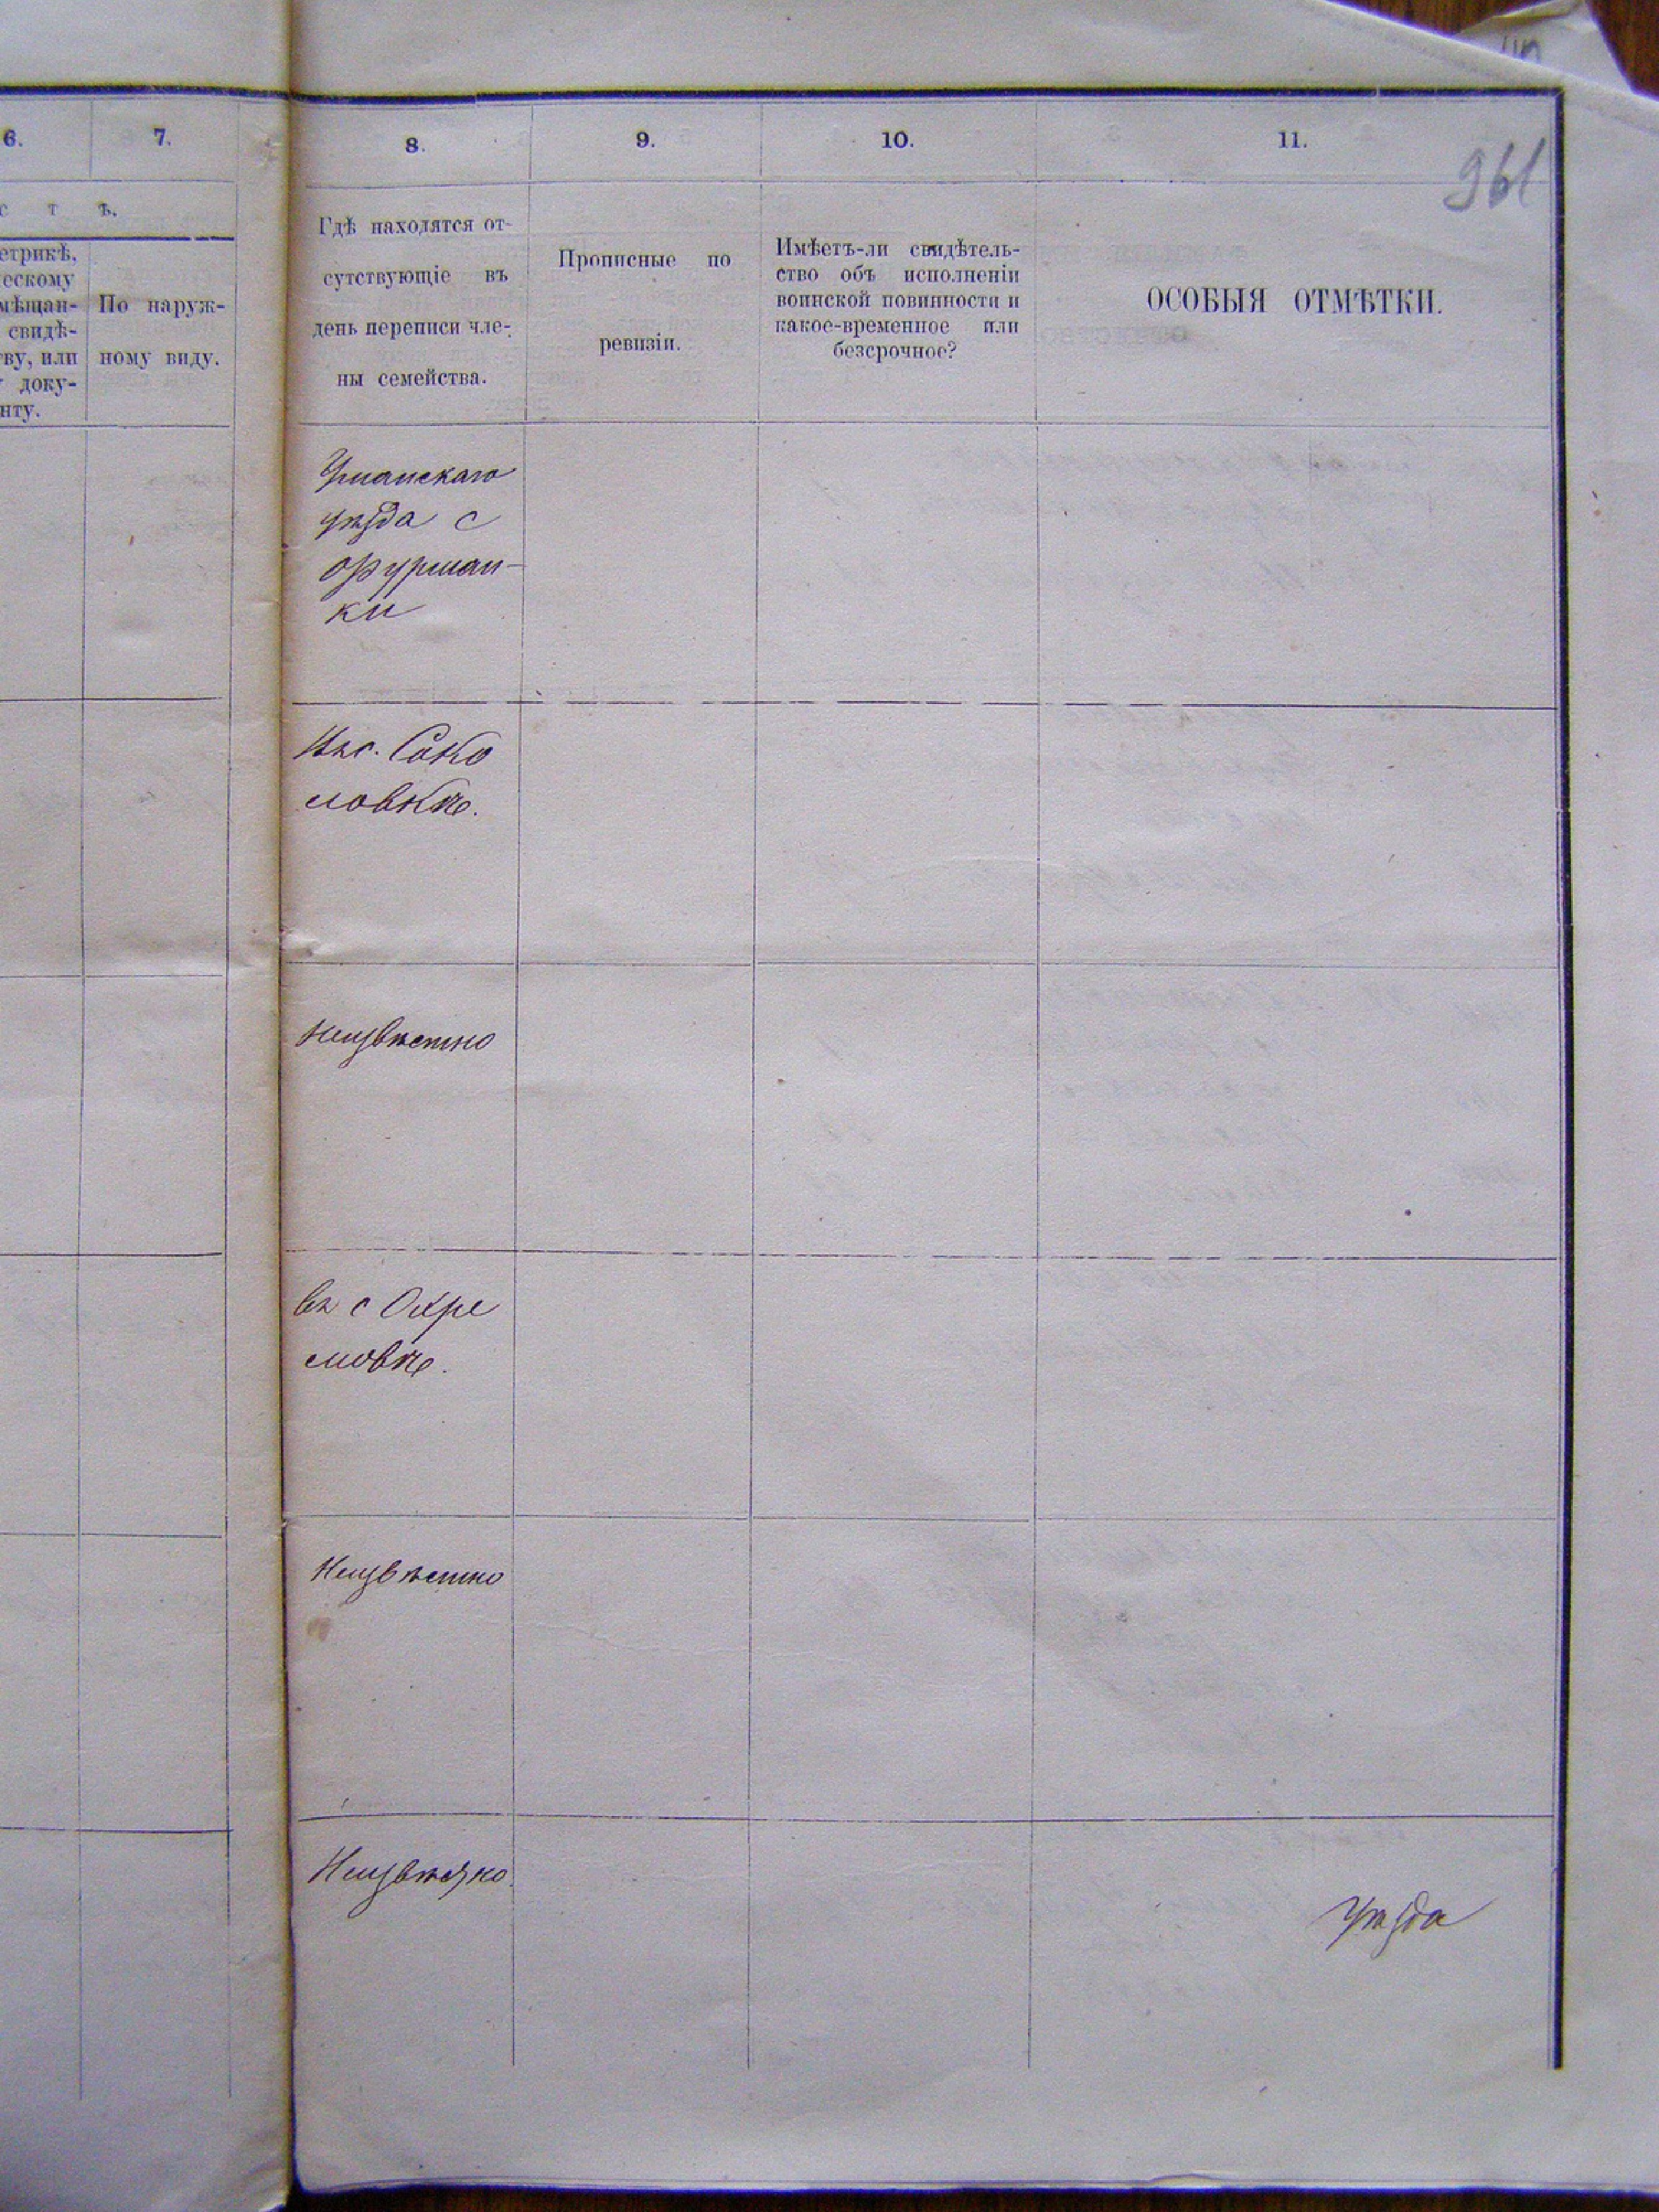 6.
7.
8.
9.
10.
11.
961
с т ѣ.
етрикѣ,
ескому
мѣщан-
свидѣ-
ву, или
доку-
нту.
По наруж-
ному виду.
Гдѣ находятся от-
сутствующіе въ
день переписи чле-
ны семейства.
Прописные по
ревизіи.
Имѣетъ-ли свидѣтель-
ство объ исполненіи
воинской повинности и
какое-временное или
безсрочное?
ОСОБЫЯ ОТМѢТКИ.
Уманскаго
уѣзда с
Фурман-
ки
Въ с. Соко
ловкѣ.
Неизвѣстно
въ с Охре
мовкѣ.
Неизвѣстно
Неизвѣстно.
уѣзда